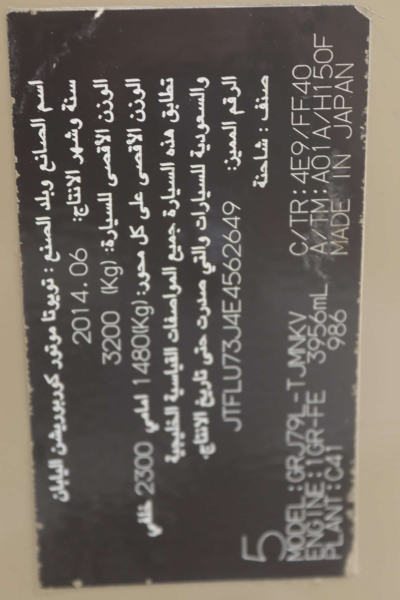 اسم الصانع وبلد الصنع : تويوتا موتور كوربوريشن اليابان
سنة وشهر الانتاج: 2014.06
الوزن الأقصى للسيارة: (Kg) 3200
الوزن الأقصى على كل محور: (Kg)1480 امامي 2300 خلفي
تطابق هذه السيارة جميع المواصفات القياسية الخليجية
والسعودية للسيارات والتي صدرت حتى تاريخ الانتاج.
الرقم المميز: JTFLU73J4E4562649
صنف : شاحنة
5
MODEL:GRJ79L-TJMNKV C/TR:4E9/FF40
ENGINE:1GR-FE 3956mL A/TM:A01A/H150F
PLANT:C41 986 MADE IN JAPAN